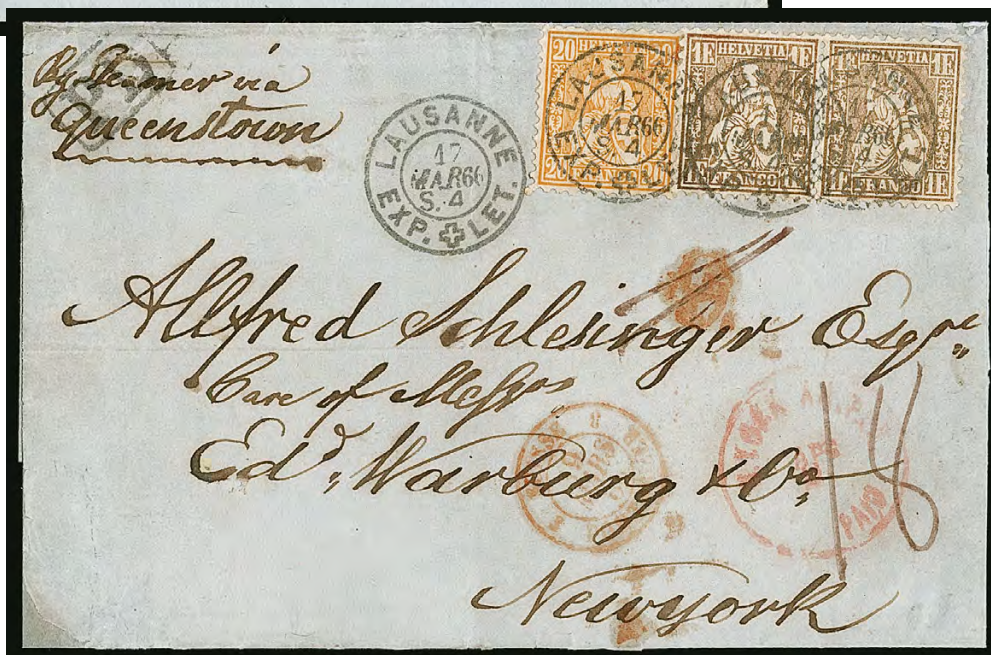 By Steamer via
Queenstown
LAUSANNE
17
MAR 66
S. 4
EXP. LET.
20 HELVETIA 20
20 FRANCO 20
LAUSANNE
17
MAR 66
S. 4
EXP.
1F HELVETIA 1F
1F FRANCO 1F
1F HELVETIA 1F
1F FRANCO 1F
Alfred Schlesinger Esqre
Care of Messrs
Edd. Warburg & Co
Newyork
PAID
18